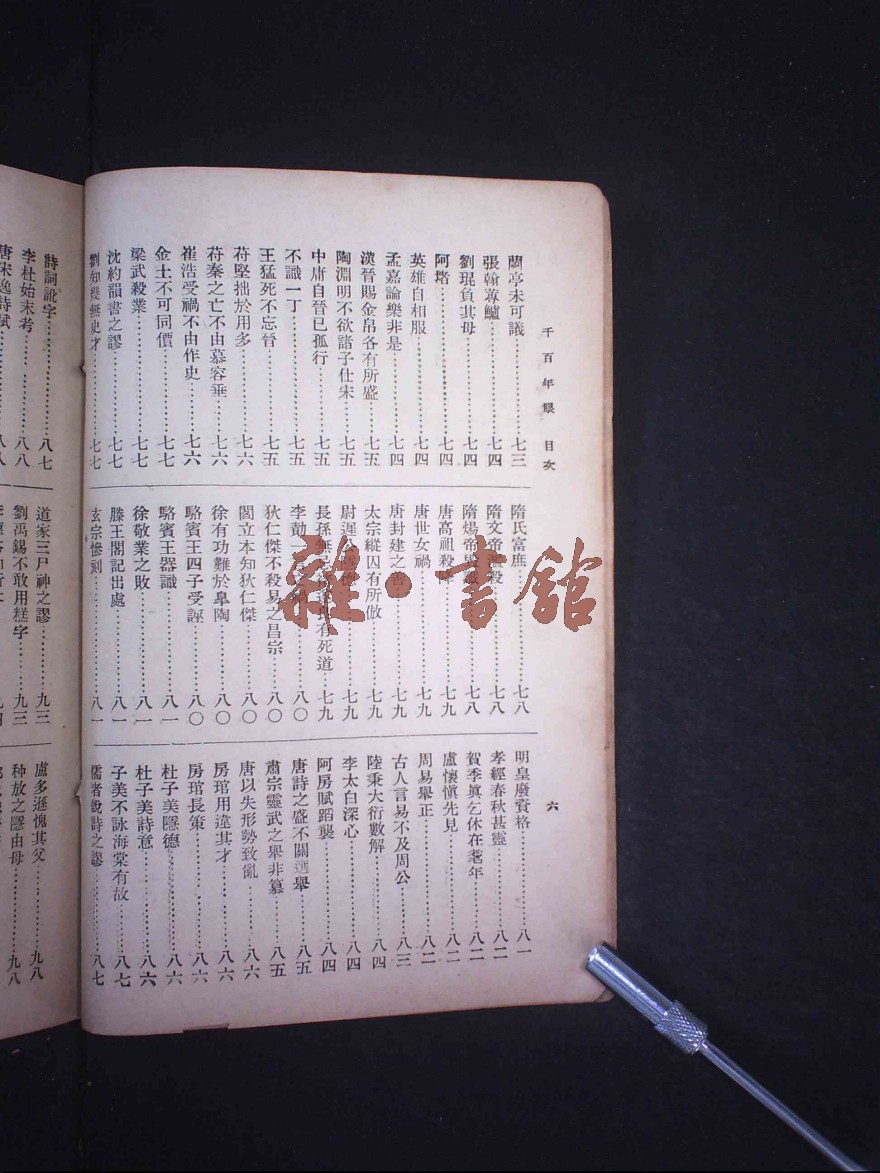 千百年眼 目次
六
蘭亭未可議……七三
張翰蓴鱸……七四
劉琨負其母……七四
阿堵……七四
英雄自相服……七四
孟嘉論樂非是……七四
漢晉賜金帛各有所盛……七五
陶淵明不欲諸子仕宋……七五
中庸自晉已孤行……七五
不識一丁……七五
王猛死不忘晉……七五
苻堅拙於用多……七六
苻秦之亡不由慕容垂……七六
崔浩受禍不由作史……七六
金土不可同價……七七
梁武殺業……七七
沈約韻書之謬……七七
劉知幾無史才……七七
隋氏富庶……七八
隋文帝 殺……七八
隋煬帝 ……七八
唐高祖殺 ……七九
唐世女禍……七九
唐封建之 ……七九
太宗縱囚有所倣……七九
尉遲 ……七九
長孫無忌 有死道……七九
李勣一 ……八〇
狄仁傑不殺易之昌宗……八〇
閻立本知狄仁傑……八〇
徐有功難於臯陶……八〇
駱賓王四子受誣……八〇
駱賓王器識……八一
徐敬業之敗……八一
滕王閣記出處……八一
玄宗慘刻……八一
明皇廢資格……八一
孝經春秋甚靈……八二
賀季眞乞休在耄年……八二
盧懷愼先見……八二
周易舉正……八二
古人言易不及周公……八三
陸秉大衍數解……八四
李太白深心……八四
阿房賦蹈襲……八四
唐詩之盛不關選舉……八五
肅宗靈武之舉非篡……八五
唐以失形勢致亂……八六
房琯用違其才……八六
房琯長策……八六
杜子美詩意……八六
杜子美隱德……八六
子美不詠海棠有故……八七
儒者說詩之謬……八七
詩詞訛字……八七
李杜始末考……八八
唐宋逸詩賦……八八
道家三尸神之謬……九三
劉禹錫不敢用糕字……九三
盧多遜愧其父……九八
种放之隱由母……九八
雜·書館